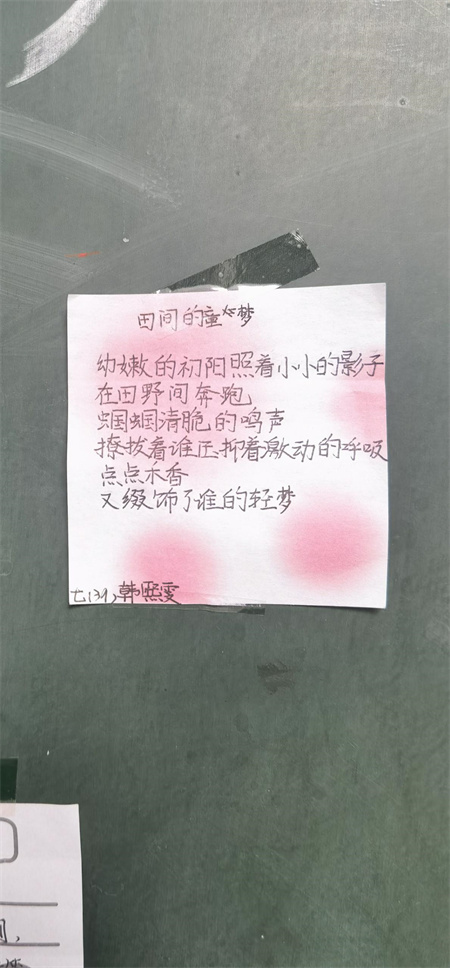 田间的童年梦
幼嫩的初阳照着小小的影子
在田野间奔跑
蝈蝈清脆的鸣声
撩拔着谁压抑着激动的呼吸
点点禾香
又缀饰了谁的轻梦
韩熙雯